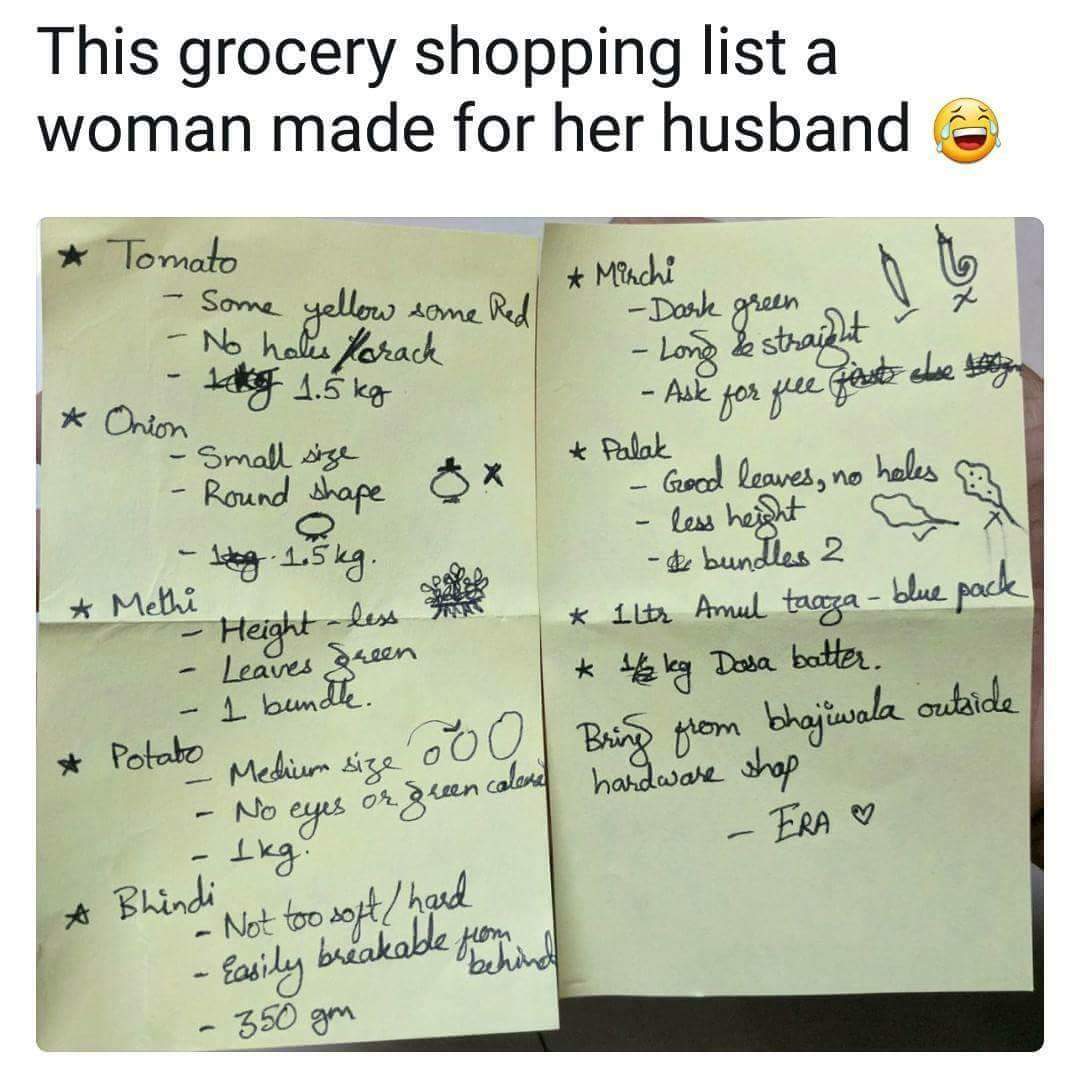 This grocery shopping list a
woman made for her husband 😂
★ Tomato
- Some yellow some Red
- No holes / crack
- 1kg 1.5 kg
★ Onion
- Small size
- Round shape
x
- 1kg. 1.5 kg.
★ Methi
- Height - less
- Leaves green
- 1 bundle.
★ Potato
- Medium size
- No eyes or green colored
- 1kg.
★ Bhindi
- Not too soft / hard
- Easily breakable from
behind
- 350 gm
★ Mirchi
- Dark green
x
- Long & straight
- Ask for free first else 100gm
★ Palak
- Good leaves, no holes
- less height
x
- bundles 2
★ 1 Ltr Amul taaza - blue pack
★ 1/2 kg Dosa batter.
Bring from bhajiwala outside
hardware shop
- ERA ♡